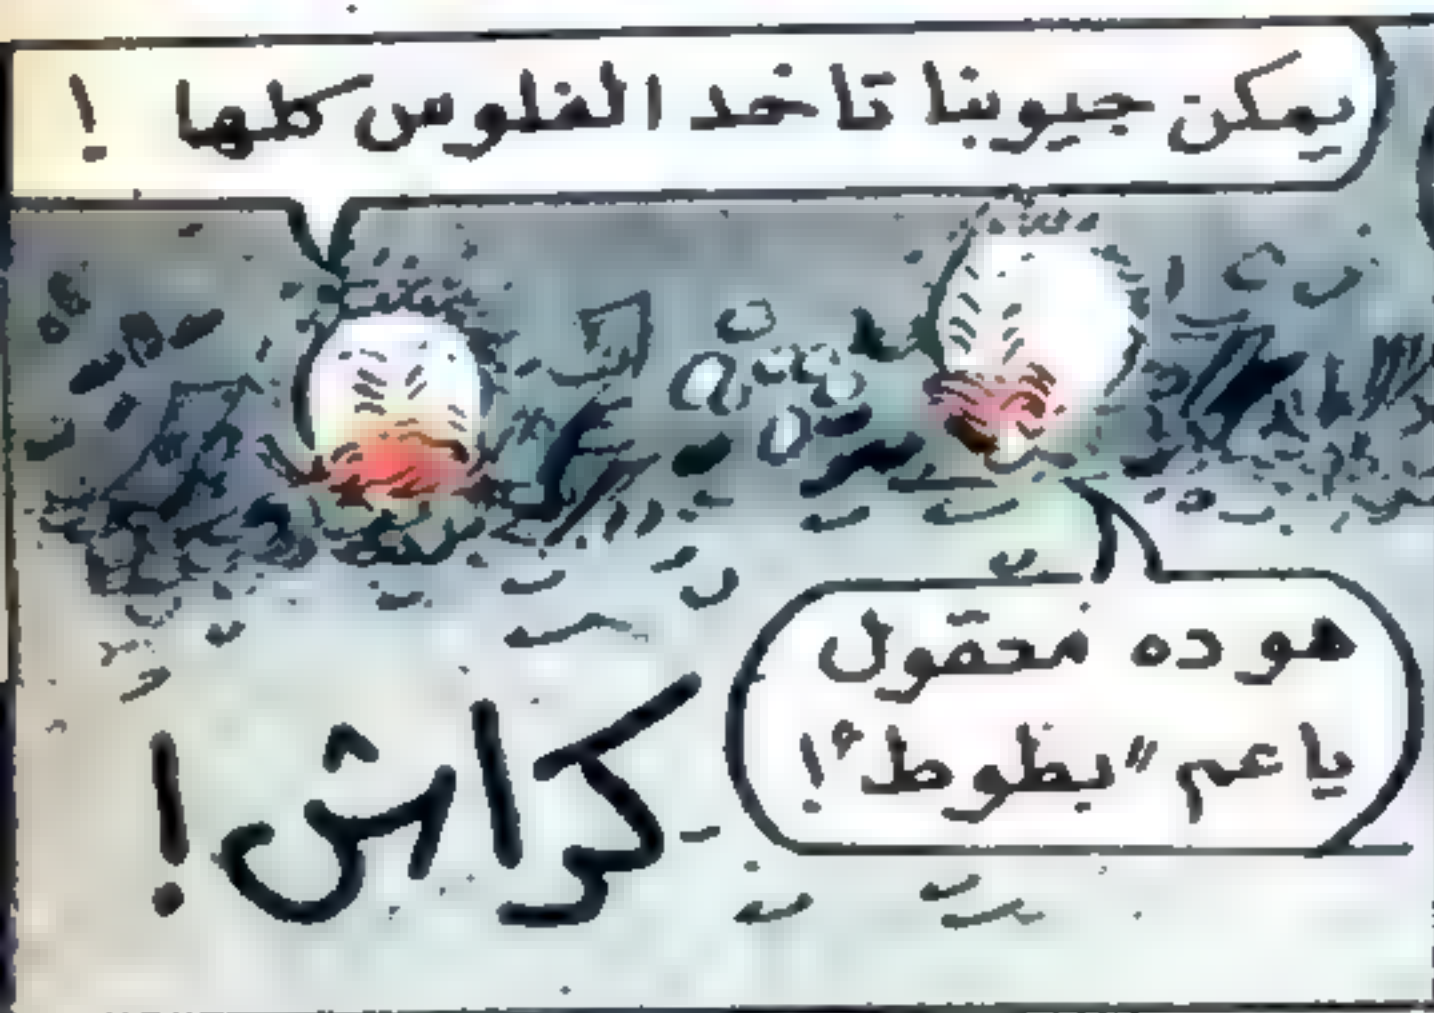 يمكن جيوبنا تاخد الفلوس كلها !
هو ده معقول
يا عم "بطوط"!
كراش!